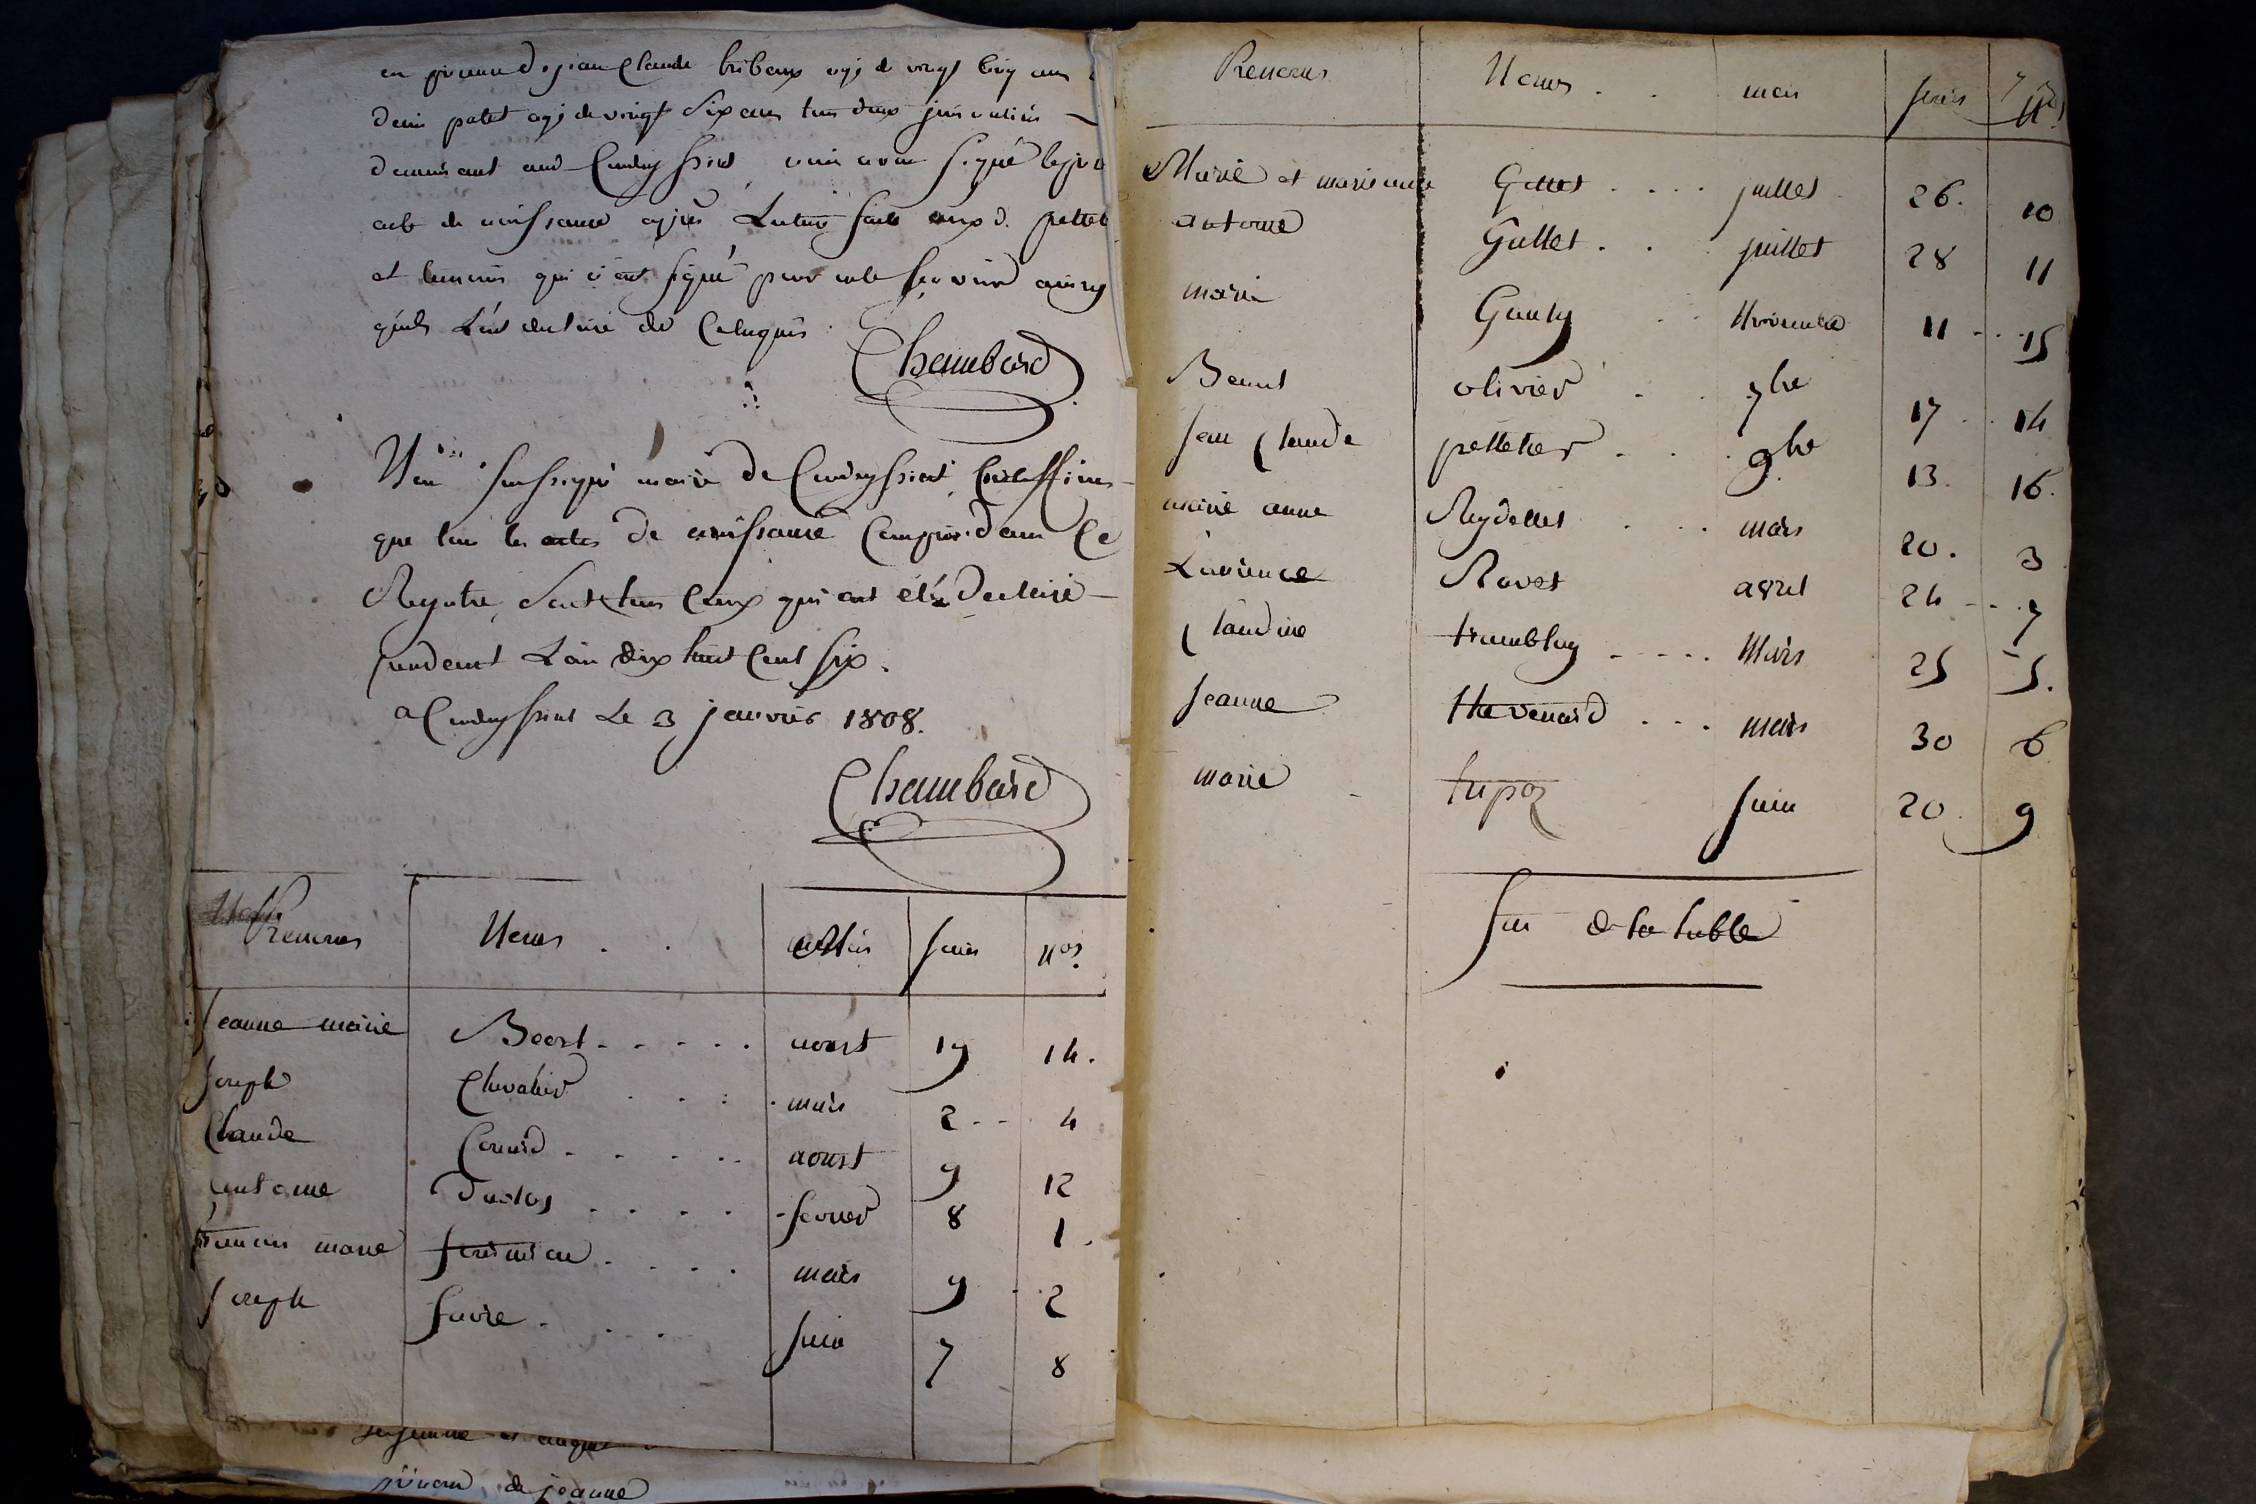 en présence de jean Claude bribaux agé de vingt Cinq ans
denis patet agé de vingt Six ans tous deux jurivatiers
demeurant aud Condeyssiat nous avons Signé le p
acte de naissance après Lecture faite auxd. pettet
et temoins qui n'ont signé pour ne le sçavoir ainsy
qu'ils L'ont declaré de Ce Requis
Chambard
Nous soussigné maire de Condeyssiat Certiffions
que tous les actes de naissance Compris dans Ce
Registre Sont tous Ceux qui ont été declaré
pendant L'an dix huit Cent Six.
a Condeyssiat Le 3 janvier 1808.
Chambard
Prenoms Noms . . Mois jours Nos.
Jeanne marie Beost . . . . . aoust 19 14.
Joseph Chevalier . . . mars 2 - - 4
Claude Convid . . . . . aoust 9 12
antoine Duclos . . . . . fevrier 8 1.
françois marie ferimieu . . . . mars 9 . . 2
Joseph favre . . . . Juin 7 8
Prenoms Noms . . mois jours Nos
Marie et marie anne Gallet . . . . juillet 26. 10
antoine Gallet . . . juillet 28 11
marie Gauly . . Novembre 11 - . . 15
Benoit olivier . . 7bre 17 . . 14
Jean Claude pelletier . . . 9bre 13. 16.
marie anne Reydellet . . . mars 20. 3
Laurence Ravet avril 24 - - . 7
Claudine tramblay - - - - . Mars 25 - 5.
Jeanne thevenard . . . mars 30 6
marie - tupoz Juin 20. 9
fin de la table
prénom de jeanne